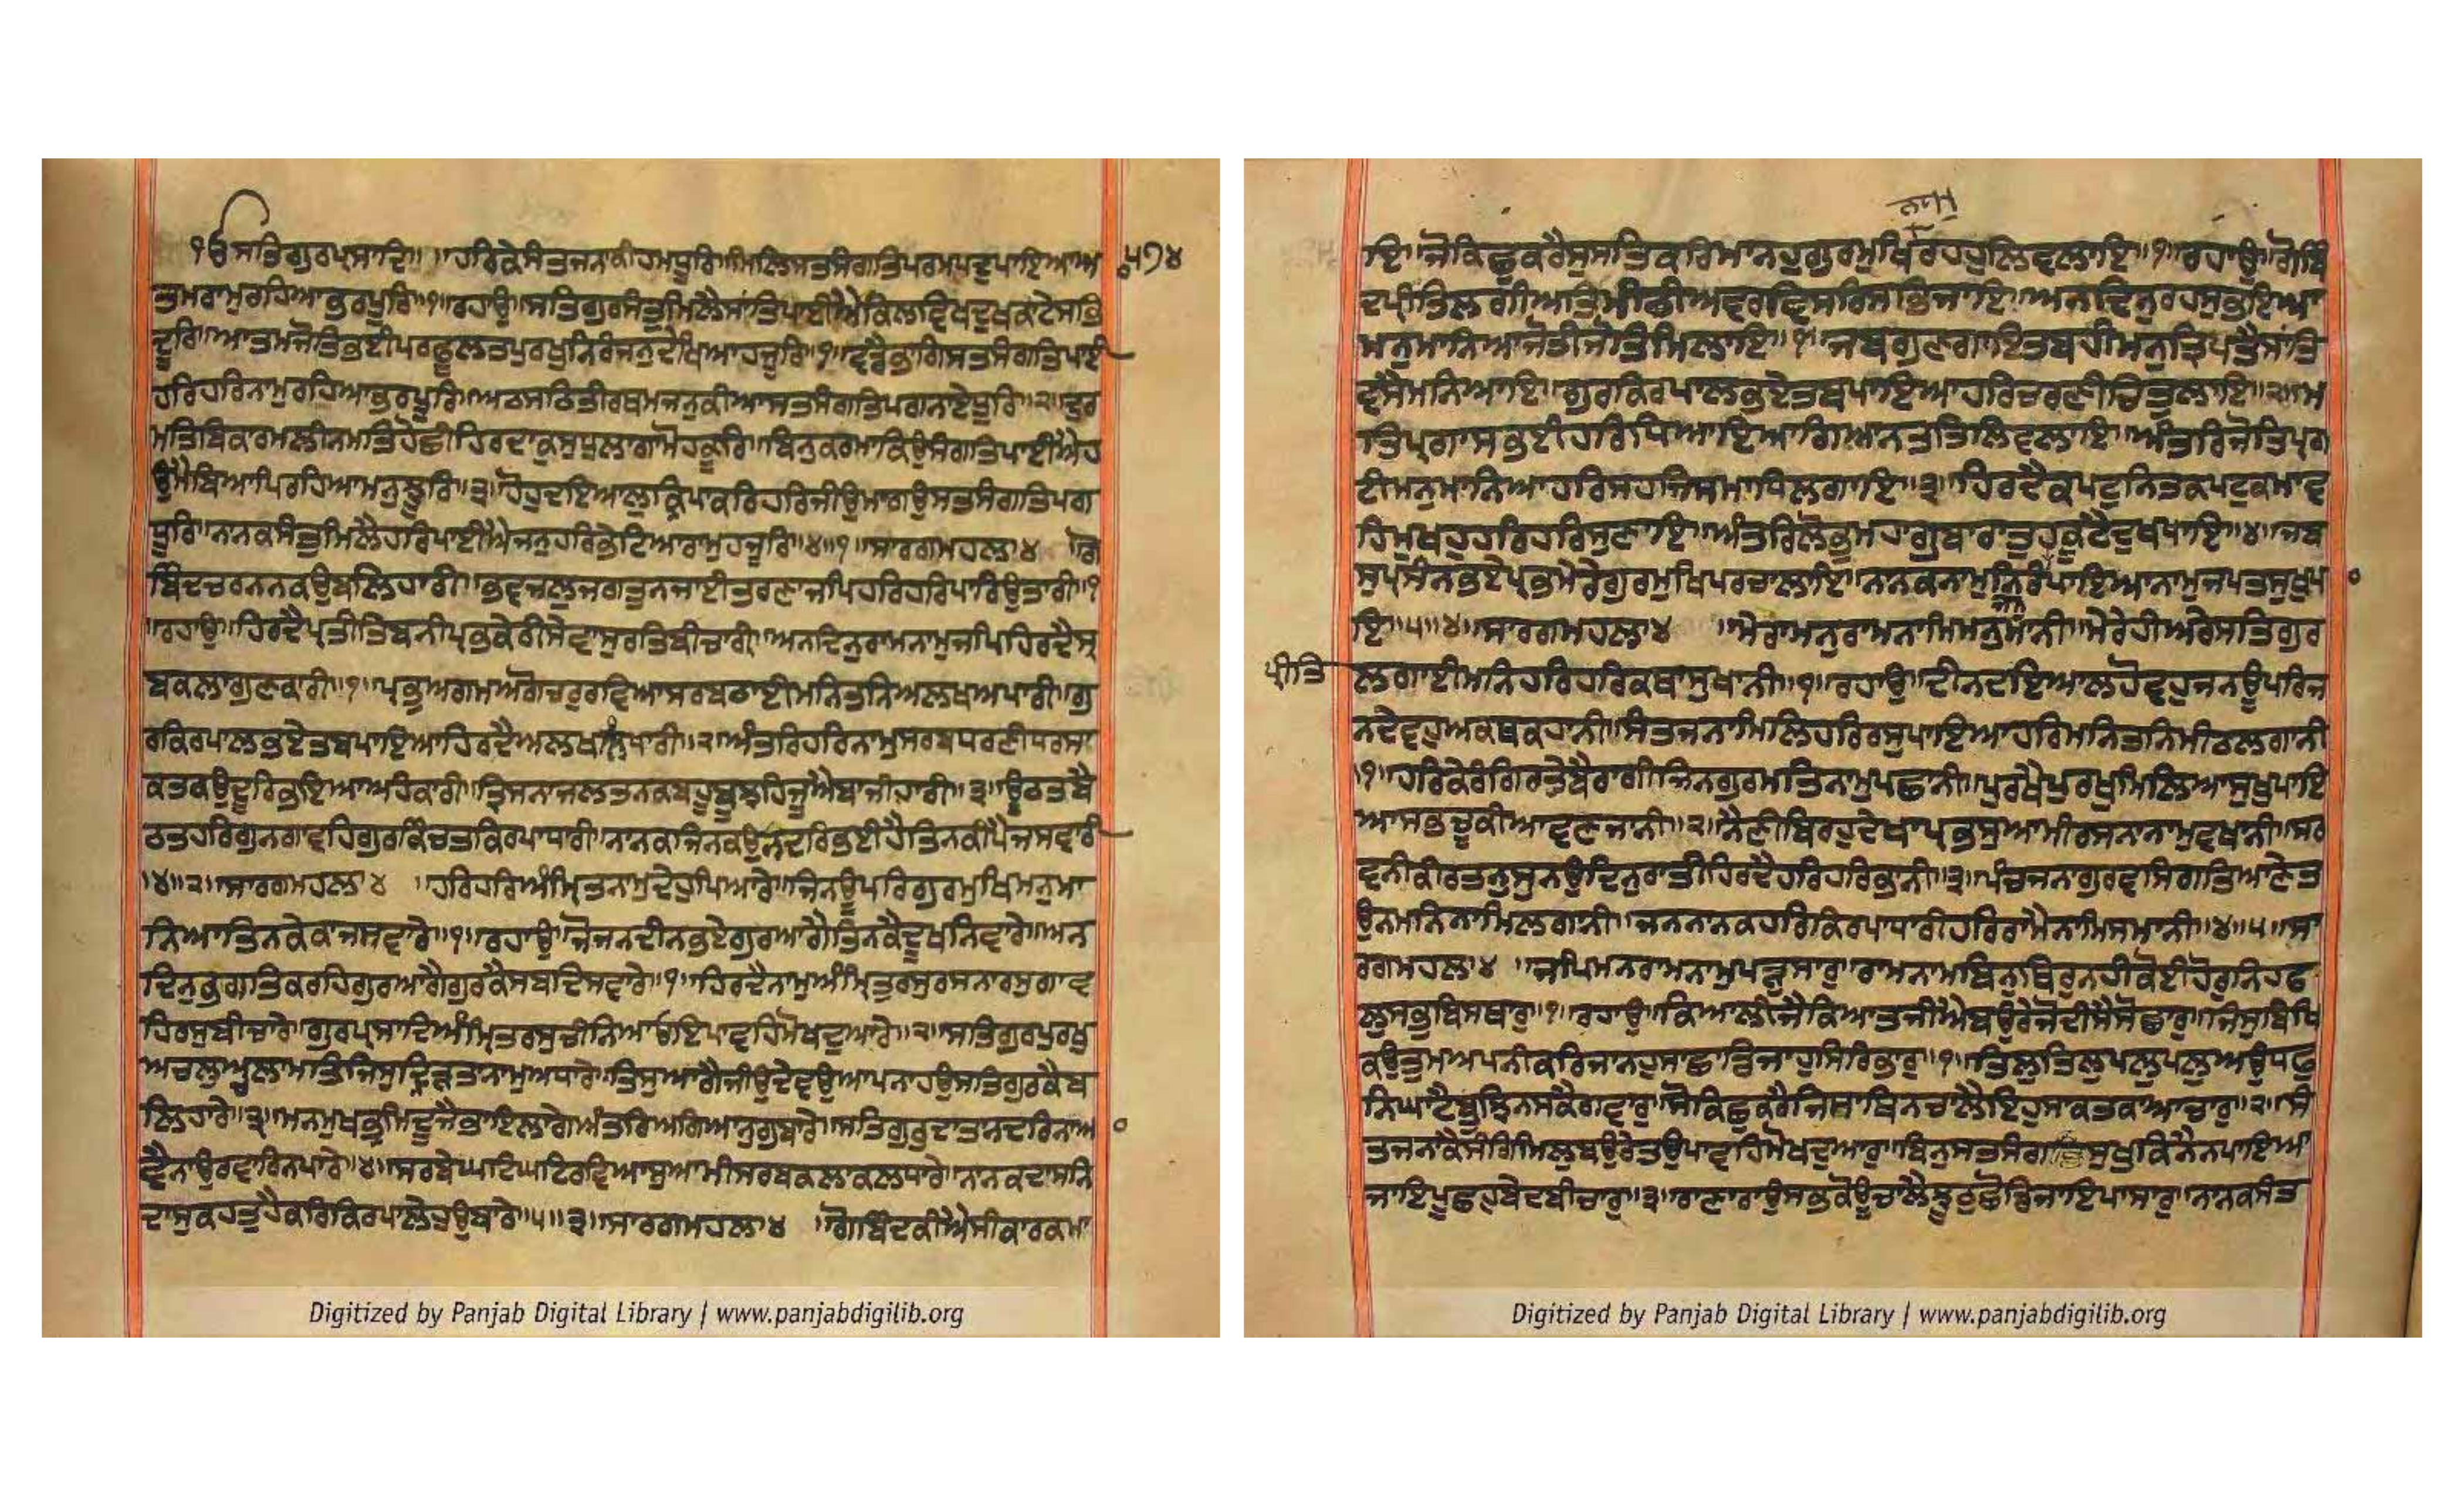 ੧ਓ ਸਤਿਗੁਰਪ੍ਰਸਾਦਿ॥ ॥ਹਰਿਕੇਸੰਤਜਨਾਕੀਹਮਧੂਰਿ॥ਮਿਲਿਸਤਸੰਗਤਿਪਰਮਪਦੁਪਾਇਆਆ
ਤਮਰਾਮੁਰਹਿਆਭਰਪੂਰਿ॥੧॥ਰਹਾਉ॥ਸਤਿਗੁਰਸੰਤੁਮਿਲੈਸਾਂਤਿਪਾਈਐਕਿਲਵਿਖਦੁਖਕਾਟੇਸਭਿ
ਦੂਰਿ॥ਆਤਮਜੋਤਿਭਈਪਰਫੂਲਤਪੁਰਖੁਨਿਰੰਜਨੁਦੇਖਿਆਹਜੂਰਿ॥੧॥ਵਡੈਭਾਗਿਸਤਸੰਗਤਿਪਾਈ
ਹਰਿਹਰਿਨਾਮੁਰਹਿਆਭਰਪੂਰਿ॥ਅਠਸਠਿਤੀਰਥਮਜਨੁਕੀਆਸਤਸੰਗਤਿਪਗਨਾਏਧੂਰਿ॥੨॥ਦੁਰ
ਮਤਿਬਿਕਾਰਮਲੀਨਮਤਿਹੋਛੀਹਿਰਦਾਕੁਸੁਧੁਲਾਗਾਮੋਹਕੂਰਿ॥ਬਿਨੁਕਰਮਾਕਿਉਸੰਗਤਿਪਾਈਐਹ
ਉਮੈਬਿਆਪਿਰਹਿਆਮਨੁਝੂਰਿ॥੩॥ਹੋਹੁਦਇਆਲੁਕ੍ਰਿਪਾਕਰਿਹਰਿਜੀਉਮਾਗਉਸਤਸੰਗਤਿਪਗ
ਧੂਰਿ॥ਨਾਨਕਸੰਤੁਮਿਲੈਹਰਿਪਾਈਐਜਨੁਹਰਿਭੇਟਿਆਰਾਮੁਹਜੂਰਿ॥੪॥੧॥ਸਾਰਗਮਹਲਾ੪ ॥ਗੋ
ਬਿੰਦਚਰਨਨਕਉਬਲਿਹਾਰੀ॥ਭਵਜਲੁਜਗਤੁਨਜਾਈਤਰਣਾਜਪਿਹਰਿਹਰਿਪਾਰਿਉਤਾਰੀ॥੧
॥ਰਹਾਉ॥ਹਿਰਦੈਪ੍ਰਤੀਤਿਬਨੀਪ੍ਰਭਕੇਰੀਸੇਵਾਸੁਰਤਿਬੀਚਾਰੀ॥ਅਨਦਿਨੁਰਾਮਨਾਮੁਜਪਿਹਿਰਦੈਸ੍ਰ
ਬਕਲਾਗੁਣਕਾਰੀ॥੧॥ਪ੍ਰਭੁਅਗਮਅਗੋਚਰੁਰਵਿਆਸਰਬਠਾਈਮਨਿਤਨਿਅਲਖਅਪਾਰੀ॥ਗੁ
ਰਕਿਰਪਾਲਭਏਤਬਪਾਇਆਹਿਰਦੈਅਲਖੁਲਖਾਰੀ॥੨॥ਅੰਤਰਿਹਰਿਨਾਮੁਸਰਬਧਰਣੀਧਰਸਾ
ਕਤਕਉਦੂਰਿਭਇਆਅਹੰਕਾਰੀ॥ਤ੍ਰਿਸਨਾਜਲਤਨਕਬਹੂਬੂਝਹਿਜੂਐਬਾਜੀਹਾਰੀ॥੩॥ਊਠਤਬੈ
ਠਤਹਰਿਗੁਨਗਾਵਹਿਗੁਰਕਿੰਚਤਕਿਰਪਾਧਾਰੀ॥ਨਾਨਕਜਿਨਕਉਨਦਰਿਭਈਹੈਤਿਨਕੀਪੈਜਸਵਾਰੀ
॥੪॥੨॥ਸਾਰਗਮਹਲਾ੪ ॥ਹਰਿਹਰਿਅੰਮ੍ਰਿਤਨਾਮੁਦੇਹੁਪਿਆਰੇ॥ਜਿਨਊਪਰਿਗੁਰਮੁਖਿਮਨੁਮਾ
ਨਿਆਤਿਨਕੇਕਾਜਸਵਾਰੇ॥੧॥ਰਹਾਉ॥ਜੋਜਨਦੀਨਭਏਗੁਰਆਗੈਤਿਨਕੇਦੂਖਨਿਵਾਰੇ॥ਅਨ
ਦਿਨੁਭਗਤਿਕਰਹਿਗੁਰਆਗੈਗੁਰਕੈਸਬਦਿਸਵਾਰੇ॥੧॥ਹਿਰਦੈਨਾਮੁਅੰਮ੍ਰਿਤੁਰਸੁਰਸਨਾਰਸੁਗਾਵ
ਹਿਰਸੁਬੀਚਾਰੇ॥ਗੁਰਪ੍ਰਸਾਦਿਅੰਮ੍ਰਿਤਰਸੁਚੀਨਿਆਓਇਪਾਵਹਿਮੋਖਦੁਆਰੇ॥੨॥ਸਤਿਗੁਰਪੁਰਖੁ
ਅਚਲੁਅਚਲਾਮਤਿਜਿਸੁਦ੍ਰਿੜਤਾਨਾਮੁਅਧਾਰੇ॥ਤਿਸੁਆਗੈਜੀਉਦੇਵਉਆਪਨਾਹਉਸਤਿਗੁਰਕੈਬ
ਲਿਹਾਰੇ॥੩॥ਮਨਮੁਖਭ੍ਰਮਿਦੂਜੈਭਾਇਲਾਗੇਅੰਤਰਿਅਗਿਆਨੁਗੁਬਾਰੇ॥ਸਤਿਗੁਰੁਦਾਤਾਨਦਰਿਨਆ
ਵੈਨਾਉਰਵਾਰਿਨਪਾਰੇ॥੪॥ਸਰਬੇਘਟਿਘਟਿਰਵਿਆਸੁਆਮੀਸਰਬਕਲਾਕਲਧਾਰੇ॥ਨਾਨਕਦਾਸਨਿ
ਦਾਸੁਕਹਤੁਹੈਕਰਿਕਿਰਪਾਲੇਹੁਉਬਾਰੇ॥੫॥੩॥ਸਾਰਗਮਹਲਾ੪ ॥ਗੋਬਿੰਦਕੀਐਸੀਕਾਰਕਮਾ
੫੭੪
Digitized by Panjab Digital Library | www.panjabdigilib.org
ਇ॥ਜੋਕਿਛੁਕਰੈਸੁਸਤਿਕਰਿਮਾਨਹੁਗੁਰਮੁਖਿਰਹਹੁਲਿਵਲਾਇ॥੧॥ਰਹਾਉ॥ਗੋਬਿੰ
ਦਪ੍ਰੀਤਿਲਗੀਅਤਿਮੀਠੀਅਵਰਵਿਸਰਿਸਭਿਜਾਇ॥ਅਨਦਿਨੁਰਹਸੁਭਇਆ
ਮਨੁਮਾਨਿਆਜੋਤੀਜੋਤਿਮਿਲਾਇ॥੧॥ਜਬਗੁਣਗਾਇਤਬਹੀਮਨੁਤ੍ਰਿਪਤੈਸਾਂਤਿ
ਵਸੈਮਨਿਆਇ॥ਗੁਰਕਿਰਪਾਲਭਏਤਬਪਾਇਆਹਰਿਚਰਣੀਚਿਤੁਲਾਇ॥੨॥ਮ
ਤਿਪ੍ਰਗਾਸਭਈਹਰਿਧਿਆਇਆਗਿਆਨਤਤਿਲਿਵਲਾਇ॥ਅੰਤਰਿਜੋਤਿਪ੍ਰਗ
ਟੀਮਨੁਮਾਨਿਆਹਰਿਸਹਜਿਸਮਾਧਿਲਗਾਇ॥੩॥ਹਿਰਦੈਕਪਟੁਨਿਤਕਪਟੁਕਮਾਵ
ਹਿਮੁਖਹੁਹਰਿਹਰਿਸੁਣਾਇ॥ਅੰਤਰਿਲੋਭੁਮਹਾਗੁਬਾਰਾਤੁਹਕੂਟੈਦੁਖਖਾਇ॥੪॥ਜਬ
ਸੁਪ੍ਰਸੰਨਭਏਪ੍ਰਭਮੇਰੇਗੁਰਮੁਖਿਪਰਚਾਲਾਇ॥ਨਾਨਕਨਾਮੁਨਿਰੰਜਨਪਾਇਆਨਾਮੁਜਪਤਸੁਖੁਪਾ
ਇ॥੫॥੪॥ਸਾਰਗਮਹਲਾ੪ ॥ਮੇਰਾਮਨੁਰਾਮਨਾਮਿਮਨੁਮਾਨੀ॥ਮੇਰੈਹੀਅਰੈਸਤਿਗੁਰ
ਪ੍ਰੀਤਿ ਲਗਾਈਮਨਿਹਰਿਹਰਿਕਥਾਸੁਖਾਨੀ॥੧॥ਰਹਾਉ॥ਦੀਨਦਇਆਲਹੋਵਹੁਜਨਊਪਰਿਜ
ਨਦੇਵਹੁਅਕਥਕਹਾਨੀ॥ਸੰਤਜਨਾਮਿਲਿਹਰਿਰਸੁਪਾਇਆਹਰਿਮਨਿਤਨਿਮੀਠਲਗਾਨੀ
॥੧॥ਹਰਿਕੈਰੰਗਿਰਤੇਬੈਰਾਗੀਜਿਨਗੁਰਮਤਿਨਾਮੁਪਛਾਨੀ॥ਪੁਰਖੈਪੁਰਖੁਮਿਲਿਆਸੁਖੁਪਾਇ
ਆਸਭਚੂਕੀਆਵਣਜਾਨੀ॥੨॥ਨੈਣੀਬਿਰਹੁਦੇਖਾਪ੍ਰਭਸੁਆਮੀਰਸਨਾਨਾਮੁਵਖਾਨੀ॥ਸਰ
ਵਨੀਕੀਰਤਨੁਸੁਨਉਦਿਨੁਰਾਤੀਹਿਰਦੈਹਰਿਹਰਿਭਾਨੀ॥੩॥ਪੰਚਜਨਾਗੁਰਵਸਿਗਤਿਆਣੇਤ
ਉਨਮਨਿਨਾਮਿਲਗਾਨੀ॥ਜਨਨਾਨਕਹਰਿਕਿਰਪਾਧਾਰੀਹਰਿਰਾਮੈਨਾਮਿਸਮਾਨੀ॥੪॥੫॥ਸਾ
ਰਗਮਹਲਾ੪ ॥ਜਪਿਮਨਰਾਮਨਾਮੁਪੜ੍ਹੁਸਾਰੁ॥ਰਾਮਨਾਮਬਿਨੁਥਿਰੁਨਹੀਕੋਈਹੋਰੁਨਿਹਫ
ਲੁਸਭੁਬਿਸਥਾਰੁ॥੧॥ਰਹਾਉ॥ਕਿਆਲੀਜੈਕਿਆਤਜੀਐਬਉਰੇਜੋਦੀਸੈਸੋਛਾਰੁ॥ਜਿਸੁਬਿਖਿ
ਕਉਤੁਮਅਪਨੀਕਰਿਜਾਨਹੁਸਾਛਾਡਿਜਾਹੁਸਿਰਿਭਾਰੁ॥੧॥ਤਿਲੁਤਿਲੁਪਲੁਪਲੁਅਉਧਫੁ
ਨਿਘਾਟੈਬੂਝਿਨਸਕੈਗਵਾਰੁ॥ਸੋਕਿਛੁਕਰੈਜਿਸਾਥਿਨਚਾਲੈਇਹੁਸਾਕਤਕਾਆਚਾਰੁ॥੨॥ਸੰ
ਤਜਨਾਕੈਸੰਗਿਮਿਲੁਬਉਰੇਤਉਪਾਵਹਿਮੋਖਦੁਆਰੁ॥ਬਿਨੁਸਤਸੰਗਸੁਖੁਕਿਨੈਨਪਾਇਆ
ਜਾਇਪੂਛਹੁਬੇਦਬੀਚਾਰੁ॥੩॥ਰਾਣਾਰਾਉਸਭਕੋਊਚਾਲੈਝੂਠੁਛੋਡਿਜਾਇਪਾਸਾਰੁ॥ਨਾਨਕਸੰਤ
Digitized by Panjab Digital Library | www.panjabdigilib.org